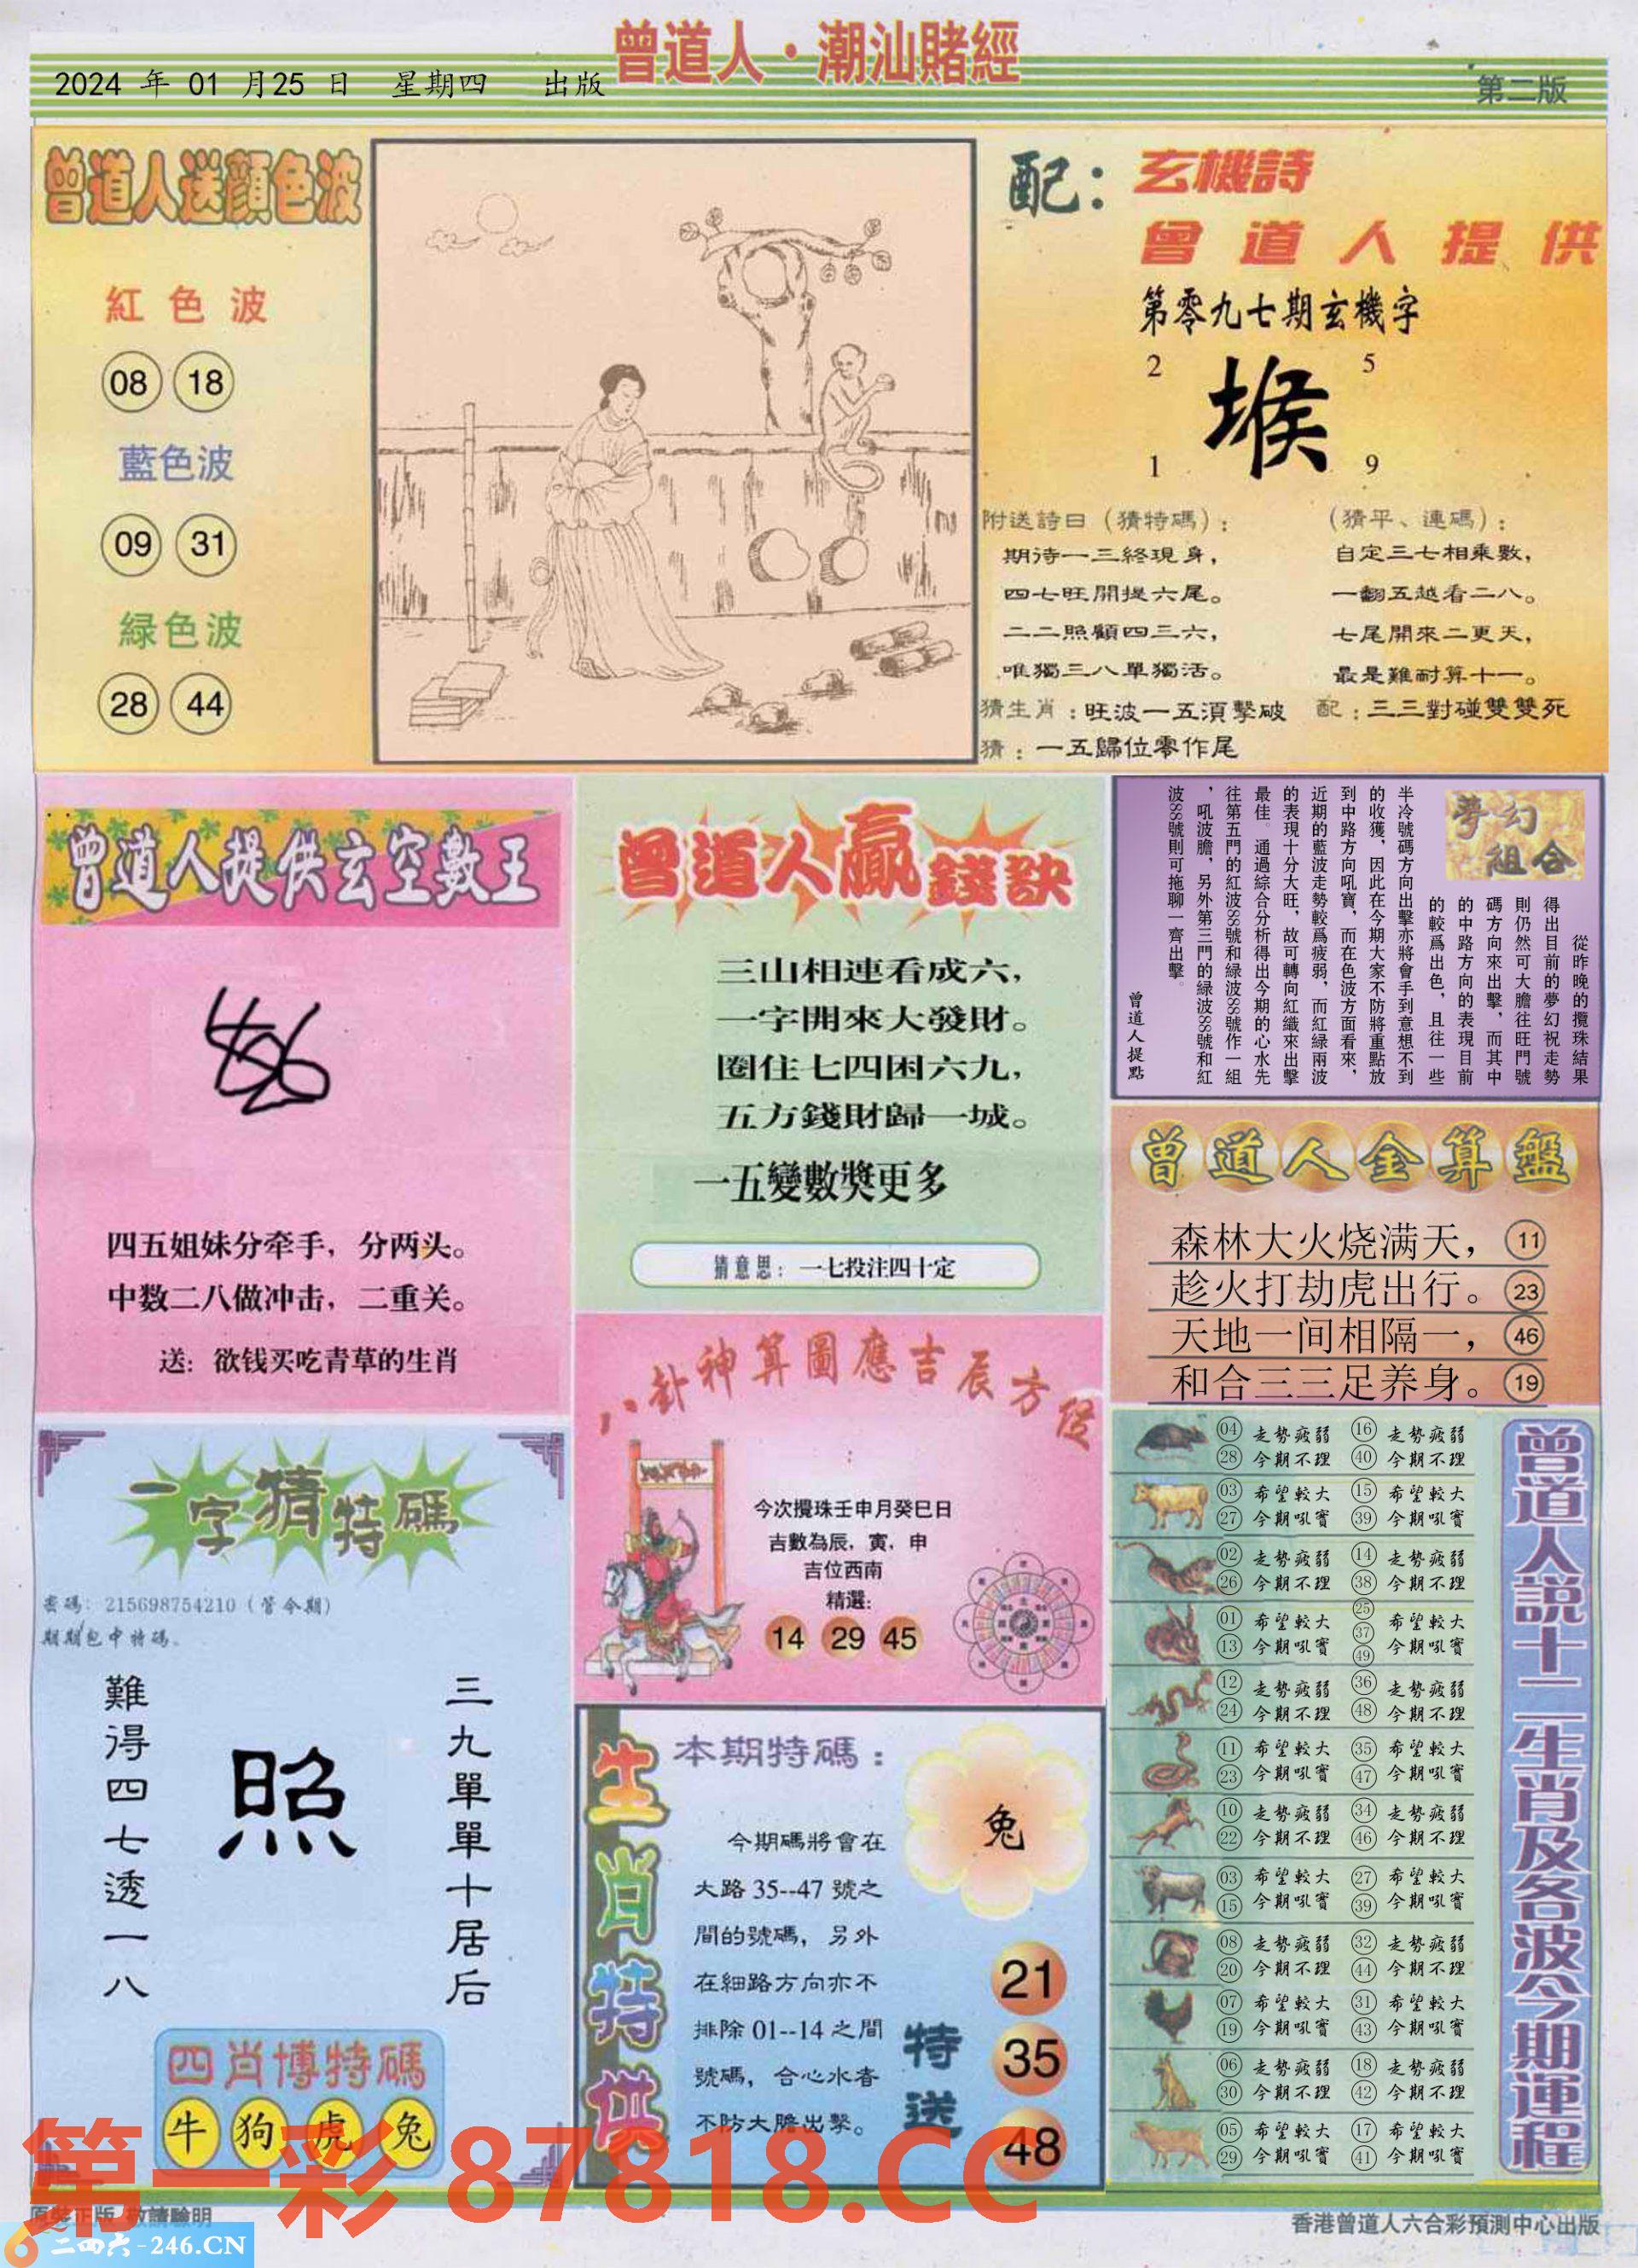 曾道人·潮汕賭經
2024 年 01 月25 日 星期四 出版
第二版
曾道人送顏色波
紅色波
08 18
藍色波
09 31
緑色波
28 44
配：玄機詩
曾道人提供
第零九七期玄機字
2 5
堠
1 9
附送詩曰（猜特碼）：
期待一三終現身，
四七旺開提六尾。
二二照顧四三六，
唯獨三八單獨活。
（猜平、連碼）：
自定三七相乘數，
一翻五越看二八。
七尾開來二更天，
最是難耐算十一。
猜生肖：旺波一五須擊破
配：三三對碰雙雙死
猜：一五歸位零作尾
曾道人提供玄空數王
四五姐妹分牵手，分两头。
中数二八做冲击，二重关。
送：欲钱买吃青草的生肖
曾道人贏錢訣
三山相連看成六，
一字開來大發財。
圈住七四困六九，
五方錢財歸一城。
一五變數獎更多
猜意思：一七投注四十定
夢幻
組合
從昨晚的攪珠結果
得出目前的夢幻祝走勢
則仍然可大膽往旺門號
碼方向來出擊，而其中
的中路方向的表現目前
的較爲出色，且往一些
半冷號碼方向出擊亦將會手到意想不到
的收獲，因此在今期大家不防將重點放
到中路方向吼寶，而在色波方面看來，
近期的藍波走勢較爲疲弱，而紅緑兩波
的表現十分大旺，故可轉向紅纖來出擊
最佳。通過綜合分析得出今期的心水先
往第五門的紅波88號和緑波88號作一組
，吼波膽，另外第三門的緑波88號和紅
波88號則可拖聊一齊出擊。
曾道人提點
曾道人金算盤
森林大火烧满天， 11
趁火打劫虎出行。 23
天地一间相隔一， 46
和合三三足养身。 19
八卦神算圖應吉辰方位
今次攪珠壬申月癸巳日
吉數為辰，寅，申
吉位西南
精選：
14 29 45
一字猜特碼
密碼：215698754210（管今期）
期期包中特碼。
三九單單十居后
照
難得四七透一八
四肖博特碼
牛 狗 虎 兔
生肖特供
本期特碼：
兔
今期碼將會在
大路 35--47 號之
間的號碼，另外
在細路方向亦不
排除 01--14 之間
號碼，合心水者
不防大膽出擊。
特送
21
35
48
曾道人說十二生肖及各波今期運程
04 走勢疲弱 16 走勢疲弱
28 今期不理 40 今期不理
03 希望較大 15 希望較大
27 今期吼實 39 今期吼實
02 走勢疲弱 14 走勢疲弱
26 今期不理 38 今期不理
01 希望較大 25 37 49 希望較大
13 今期吼實 今期吼實
12 走勢疲弱 36 走勢疲弱
24 今期不理 48 今期不理
11 希望較大 35 希望較大
23 今期吼實 47 今期吼實
10 走勢疲弱 34 走勢疲弱
22 今期不理 46 今期不理
03 希望較大 27 希望較大
15 今期吼實 39 今期吼實
08 走勢疲弱 32 走勢疲弱
20 今期不理 44 今期不理
07 希望較大 31 希望較大
19 今期吼實 43 今期吼實
06 走勢疲弱 18 走勢疲弱
30 今期不理 42 今期不理
05 希望較大 17 希望較大
29 今期吼實 41 今期吼實
第一彩 87818.CC
原裝正版 敬請驗明
二四六-246.CN
香港曾道人六合彩預測中心出版